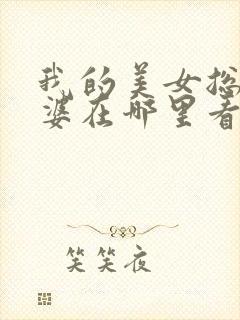 我的美女总
婆在哪里看
笑笑夜